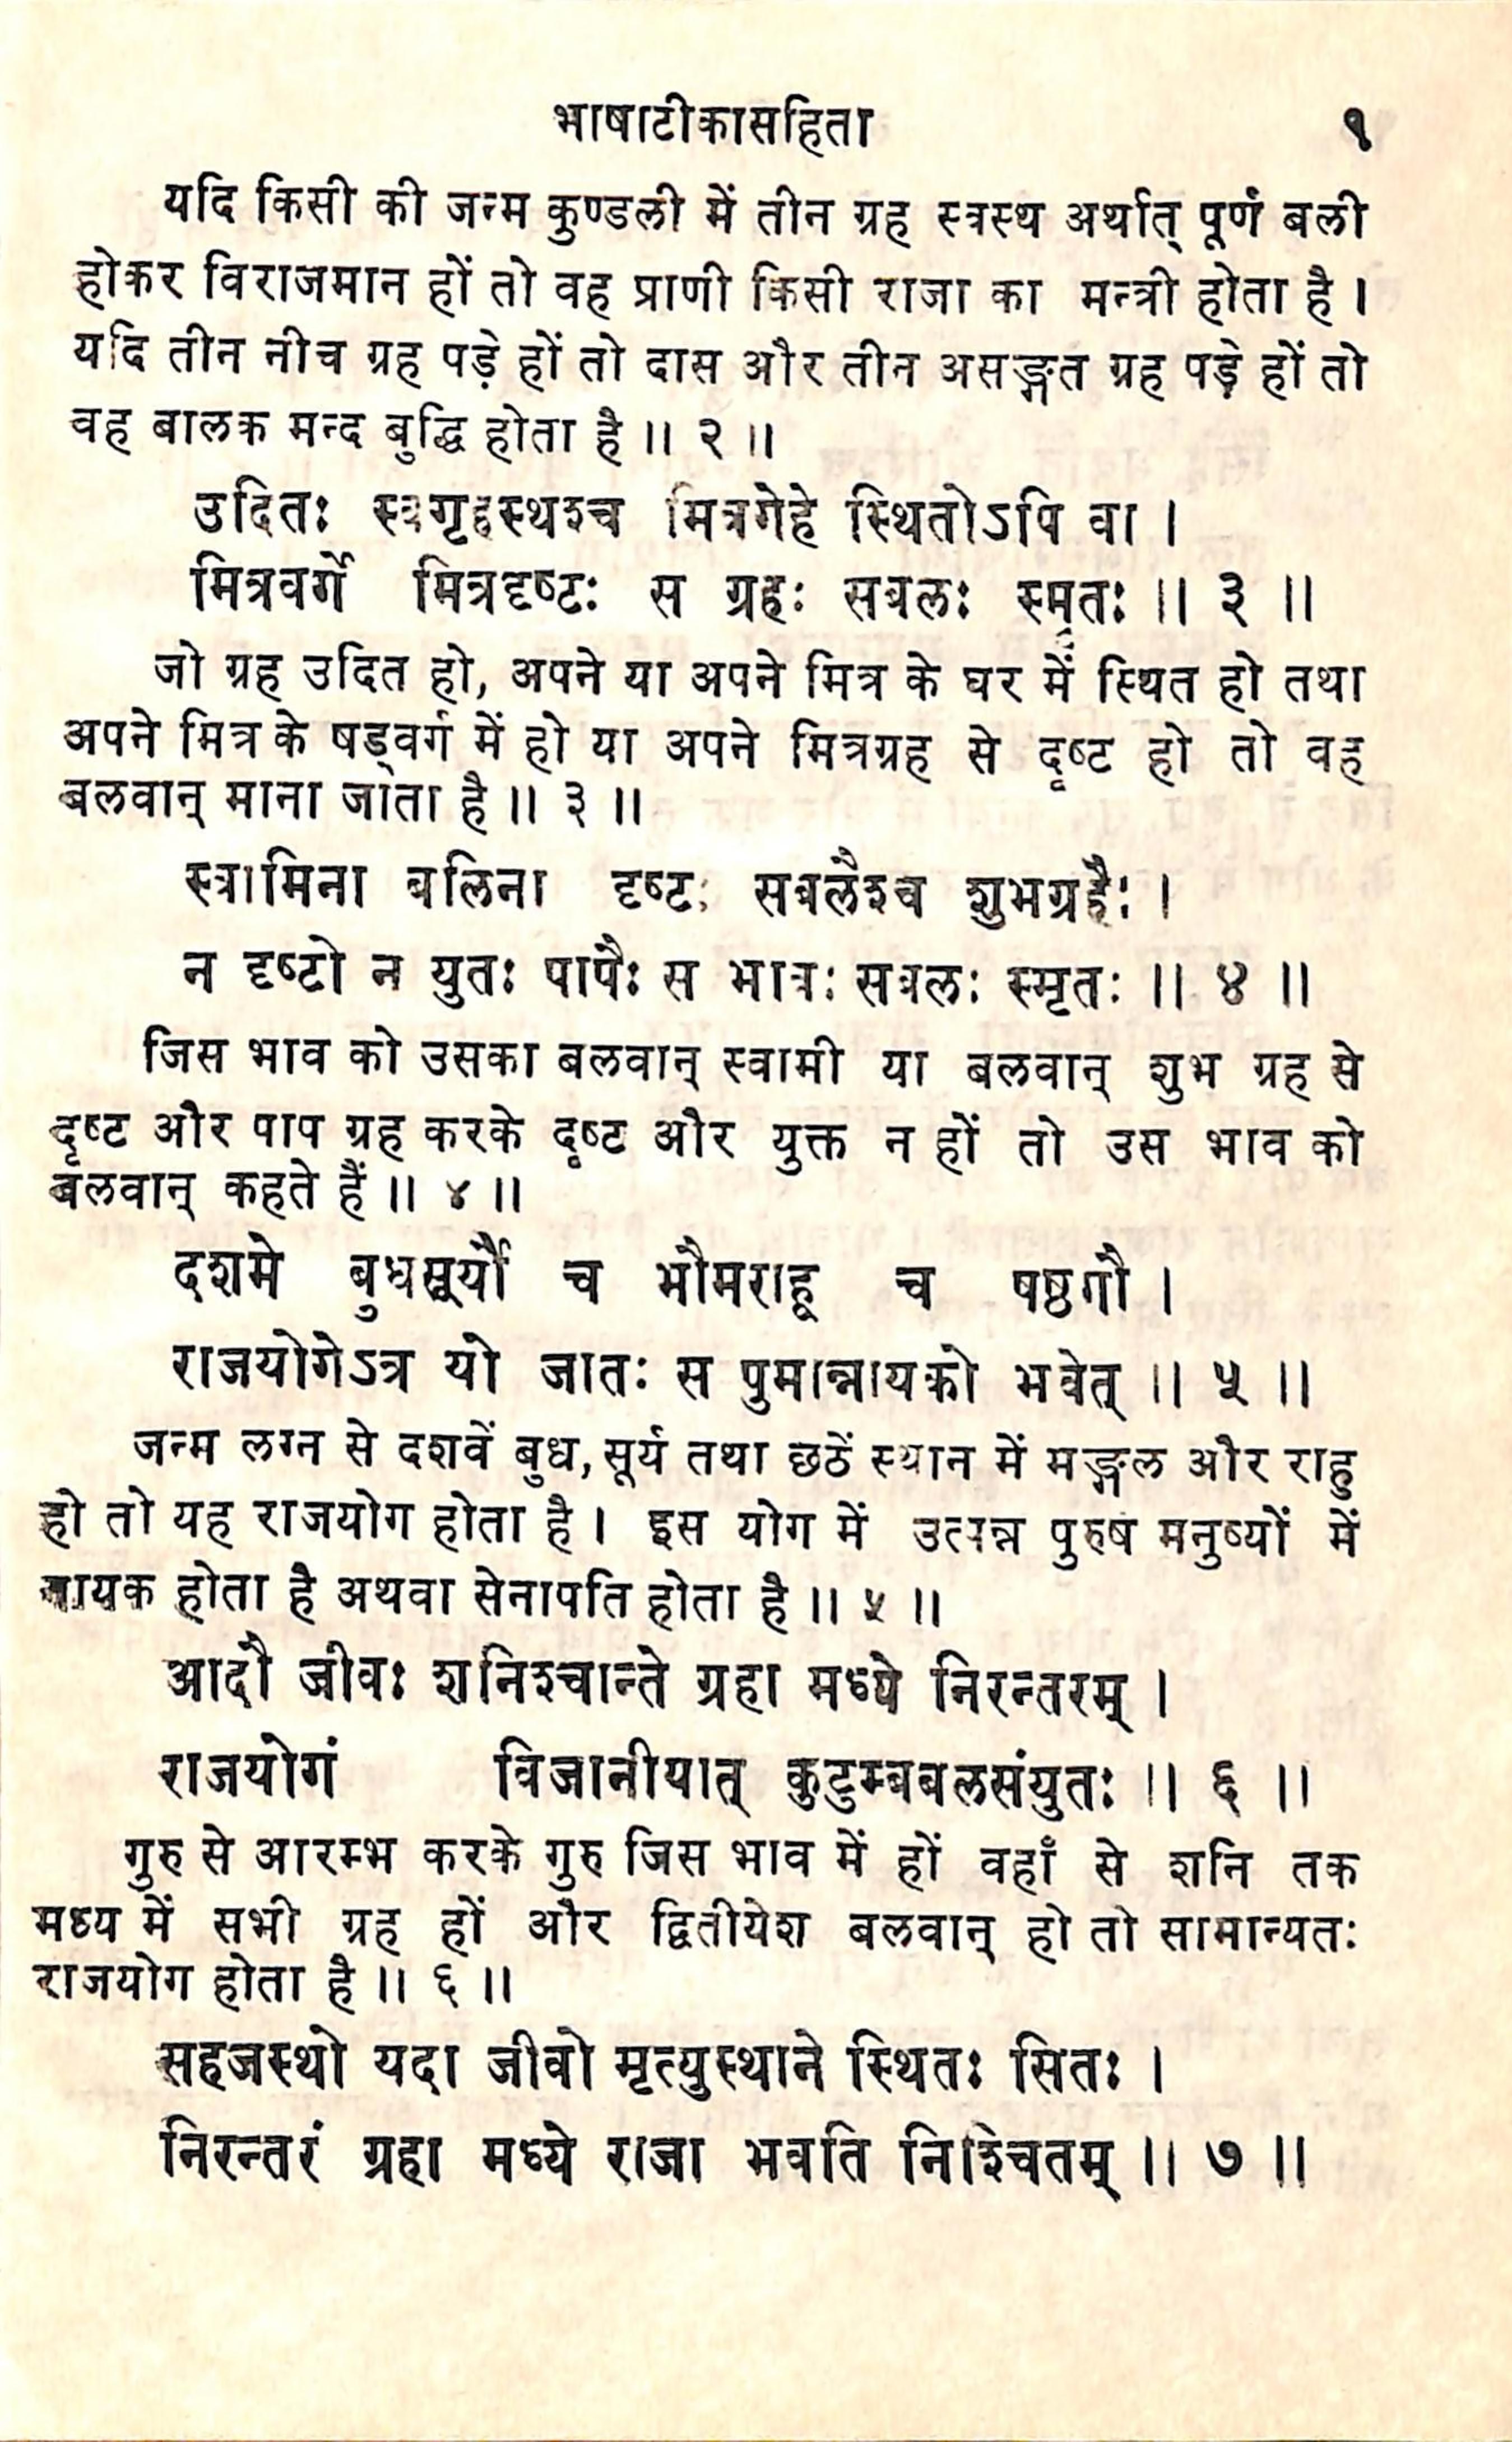 भाषाटीकासहिता १
यदि किसी की जन्म कुण्डली में तीन ग्रह स्वस्थ अर्थात् पूर्ण बली
होकर विराजमान हों तो वह प्राणी किसी राजा का मन्त्री होता है ।
यदि तीन नीच ग्रह पड़े हों तो दास और तीन असङ्गत ग्रह पड़े हों तो
वह बालक मन्द बुद्धि होता है ॥ २ ॥
उदितः स्वगृहस्थश्च मित्रगेहे स्थितोऽपि वा ।
मित्रवर्गे मित्रदृष्टः स ग्रहः सबलः स्मृतः ॥ ३ ॥
जो ग्रह उदित हो, अपने या अपने मित्र के घर में स्थित हो तथा
अपने मित्र के षड्वर्ग में हो या अपने मित्रग्रह से दृष्ट हो तो वह
बलवान् माना जाता है ॥ ३ ॥
स्वामिना बलिना दृष्टः सबलैश्च शुभग्रहैः ।
न दृष्टो न युतः पापैः स भावः सबलः स्मृतः ॥ ४ ॥
जिस भाव को उसका बलवान् स्वामी या बलवान् शुभ ग्रह से
दृष्ट और पाप ग्रह करके दृष्ट और युक्त न हों तो उस भाव को
बलवान् कहते हैं ॥ ४ ॥
दशमे बुधसूर्यौ च भौमराहू च षष्ठगौ ।
राजयोगेऽत्र यो जातः स पुमान्नायको भवेत् ॥ ५ ॥
जन्म लग्न से दशवें बुध, सूर्य तथा छठें स्थान में मङ्गल और राहु
हो तो यह राजयोग होता है । इस योग में उत्पन्न पुरुष मनुष्यों में
नायक होता है अथवा सेनापति होता है ॥ ५ ॥
आदौ जीवः शनिश्चान्ते ग्रहा मध्ये निरन्तरम् ।
राजयोगं विजानीयात् कुटुम्बबलसंयुतः ॥ ६ ॥
गुरु से आरम्भ करके गुरु जिस भाव में हों वहाँ से शनि तक
मध्य में सभी ग्रह हों और द्वितीयेश बलवान् हो तो सामान्यतः
राजयोग होता है ॥ ६ ॥
सहजस्थो यदा जीवो मृत्युस्थाने स्थितः सितः ।
निरन्तरं ग्रहा मध्ये राजा भवति निश्चितम् ॥ ७ ॥